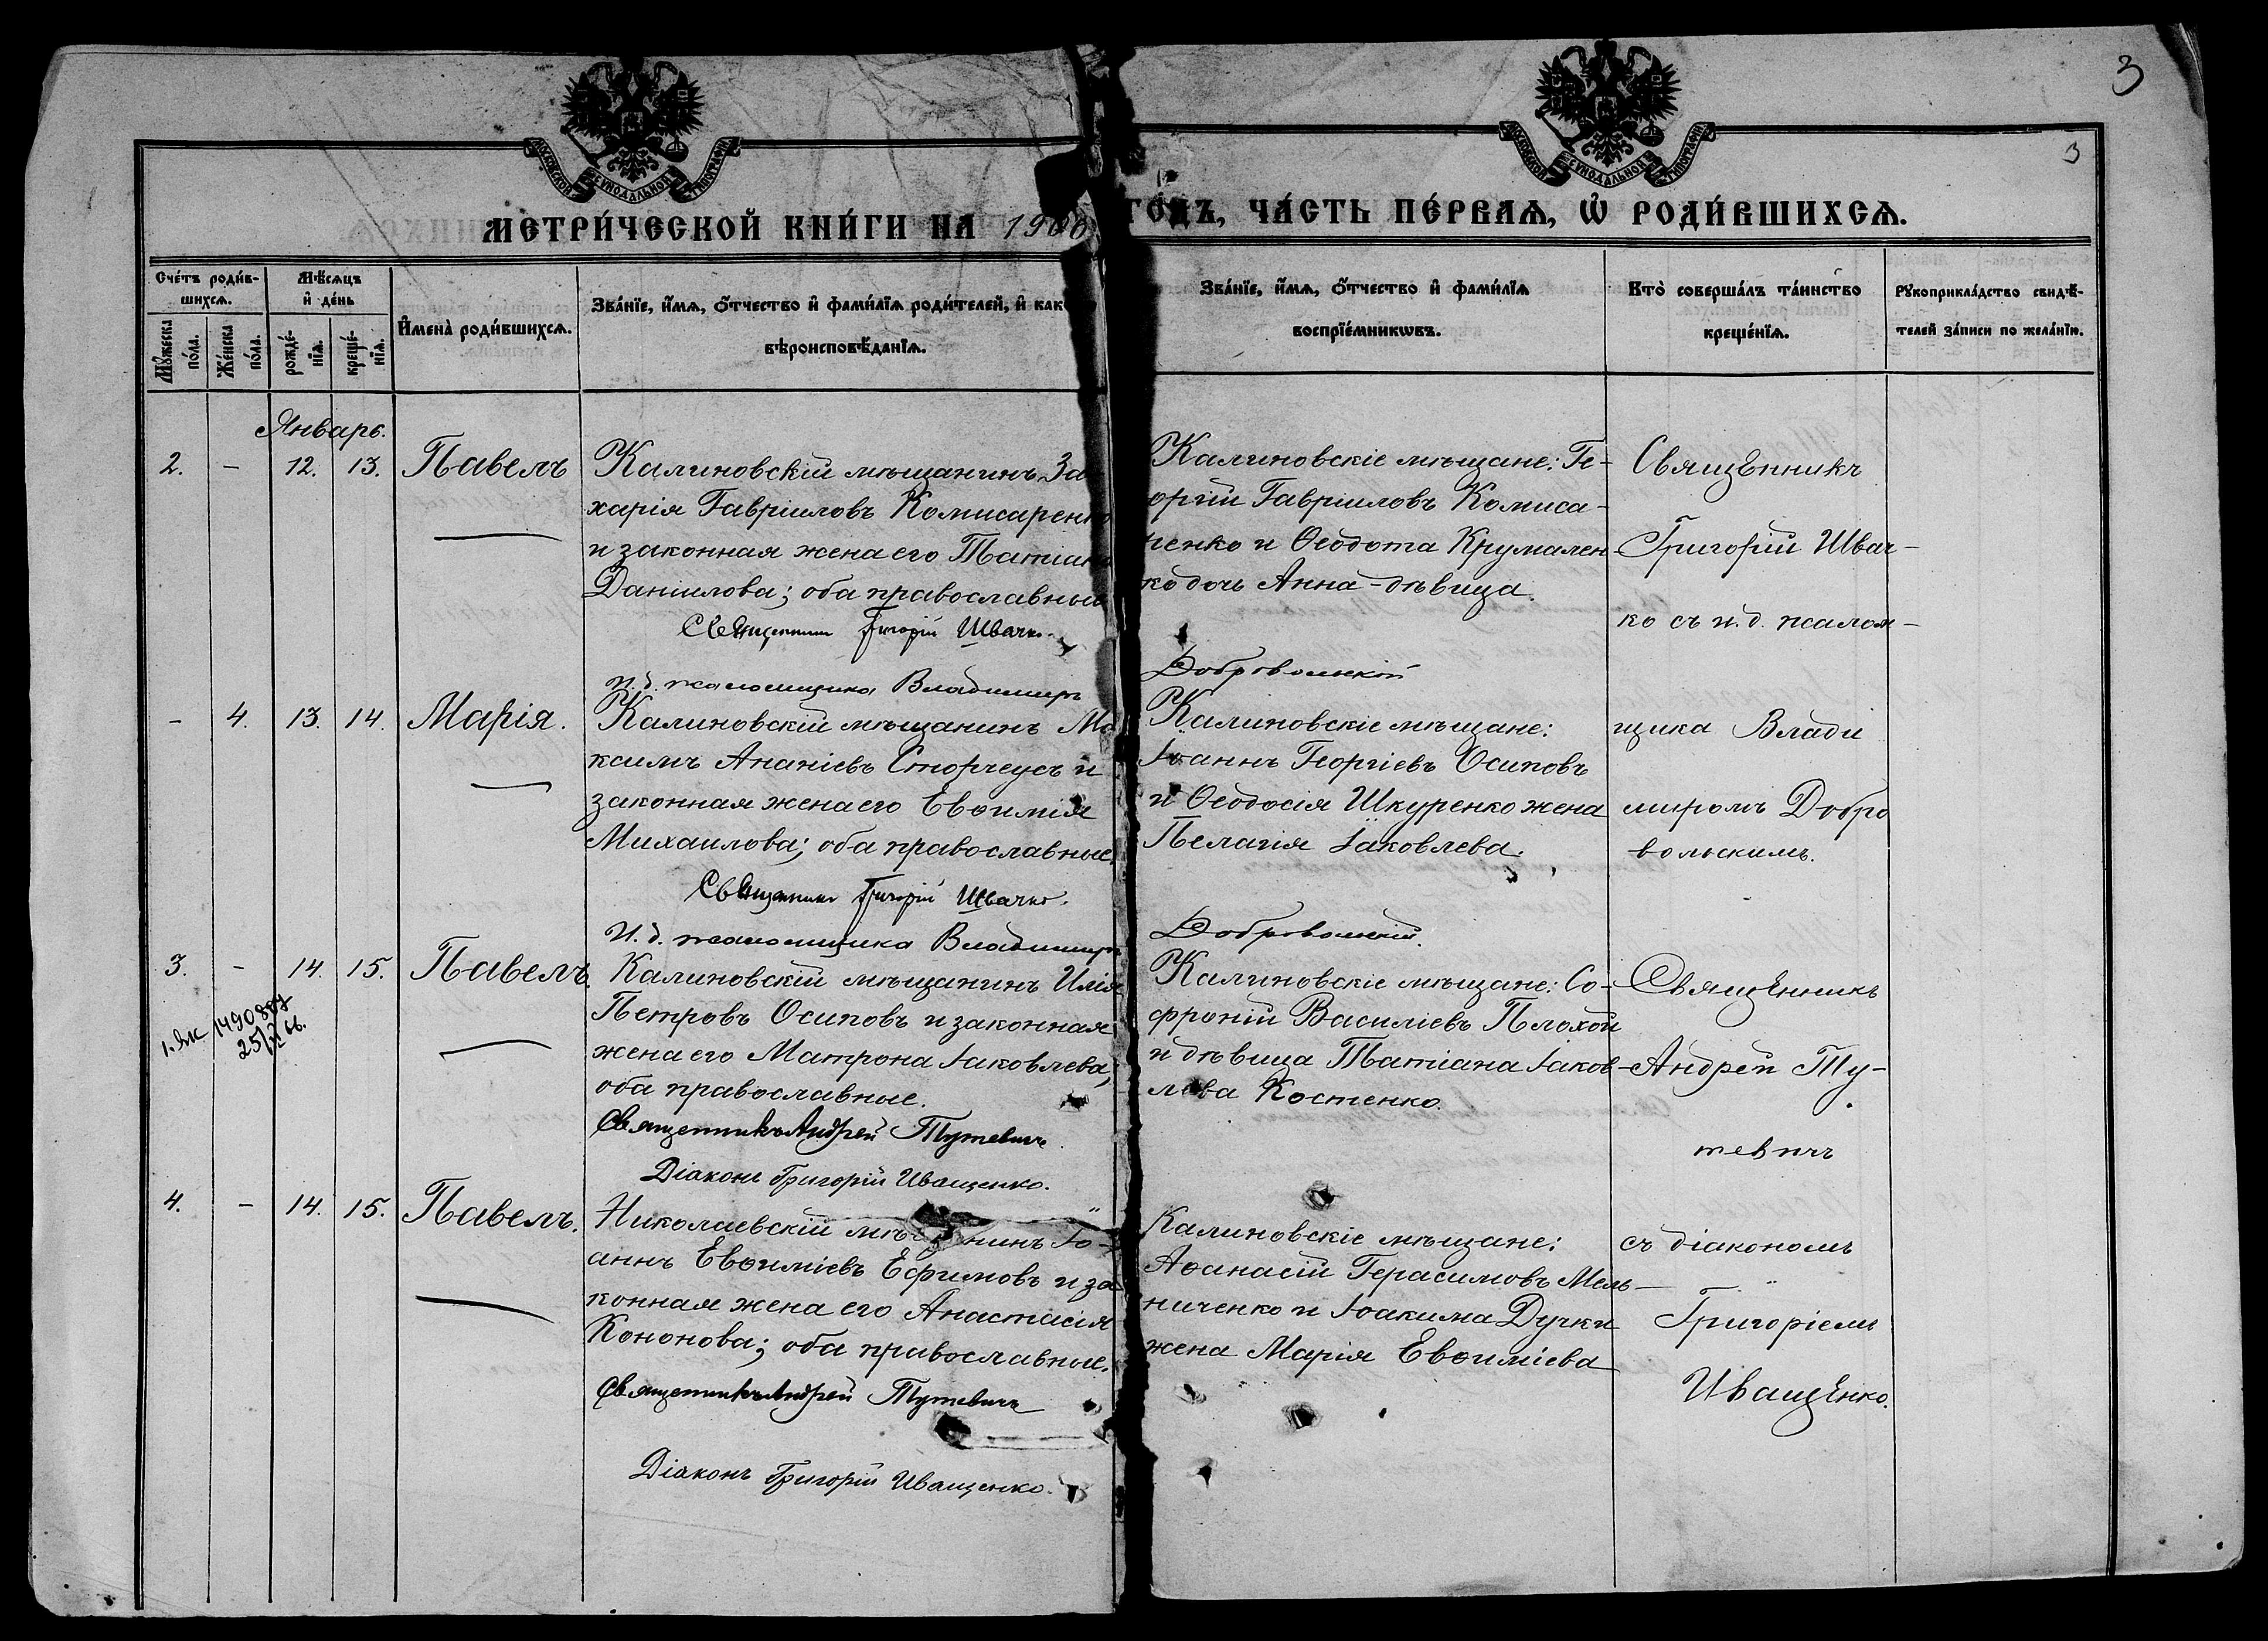 3
3
МОСКОВСКОЙ СѴНОДАЛЬНОЙ ТИПОГРАФІИ
МОСКОВСКОЙ СѴНОДАЛЬНОЙ ТИПОГРАФІИ
МЕТРИ́ЧЕСКОЙ КНИ́ГИ НА 1900 ГО́ДЪ, ЧА́СТЬ ПЕ́РВАѦ, Ѡ҆ РОДИ́ВШИХСѦ.
Сче́тъ роди́в-
шихсѧ.
Мꙋ́жеска по́ла.
Же́нска по́ла.
Мѣ́сѧцъ
и҆ де́нь
рожде́-
нїѧ.
креще́-
нїѧ.
И҆мена̀ роди́вшихсѧ.
Зва́нїе, и҆́мѧ, ѻ҆́тчество и҆ фами́лїѧ роди́телей, и҆ как
вѣроисповѣ́данїѧ.
Зва́нїе, и҆́мѧ, ѻ҆́тчество и҆ фами́лїѧ
воспрїе́мникѡвъ.
Кто̀ соверша́лъ та́инство
креще́нїѧ.
Рꙋкоприкла́дство свидѣ́-
телей за́писи по жела́нїю.
Январь.
2. - 12. 13. Павелъ
Калиновскій мѣщанинъ За
харія Гавріиловъ Комисаренко
и законная жена его Татіана
Даніилова; оба православные
Священникъ Григорій Швачко.
И. д. псаломщика Владимиръ Добровольскій
Калиновскіе мѣщане: Ге-
оргій Гавріиловъ Комиса-
ренко и Ѳеодота Крумален-
ко дочь Анна-дѣвица.
Священникъ
Григорій Швач-
ко съ и. д. псалом-
- 4. 13. 14. Марія.
Калиновскій мѣщанинъ Ма
ксимъ Ананіевъ Сторчеусъ и
законная жена его Евѳимія
Михаилова; оба православные.
Священникъ Григорій Швачко.
И. д. псаломщика Владимиръ Добровольскій.
Калиновскіе мѣщане:
Іоаннъ Георгіевъ Осиповъ
и Ѳеодосія Шкуренко жена
Пелагія Іаковлева.
щика Влади
миромъ Добро
вольскимъ.
3. - 14. 15. Павелъ.
1490807
25/ 66.
Калиновскій мѣщанинъ Илія
Петровъ Осиповъ и законная
жена его Матрона Іаковлева,
оба православные.
Священникъ Андрей Тутевичъ.
Діаконъ Григорій Иващенко.
Калиновскіе мѣщане: Со-
фроній Василіевъ Плохой
и дѣвица Татіана Іаков-
лева Костенко.
Священникъ
Андрей Ту-
тевичъ
4. - 14. 15. Павелъ.
Николаевскій мѣщанинъ Іо-
аннъ Евѳиміевъ Ефимовъ и за
конная жена его Анастасія
Кононова; оба православные.
Священникъ Андрей Тутевичъ
Діаконъ Григорій Иващенко.
Калиновскіе мѣщане:
Аѳанасій Герасимовъ Мель-
ниченко и Іоакима Дучки
жена Марія Евѳиміева
съ діакономъ
Григоріемъ
Иващенко.